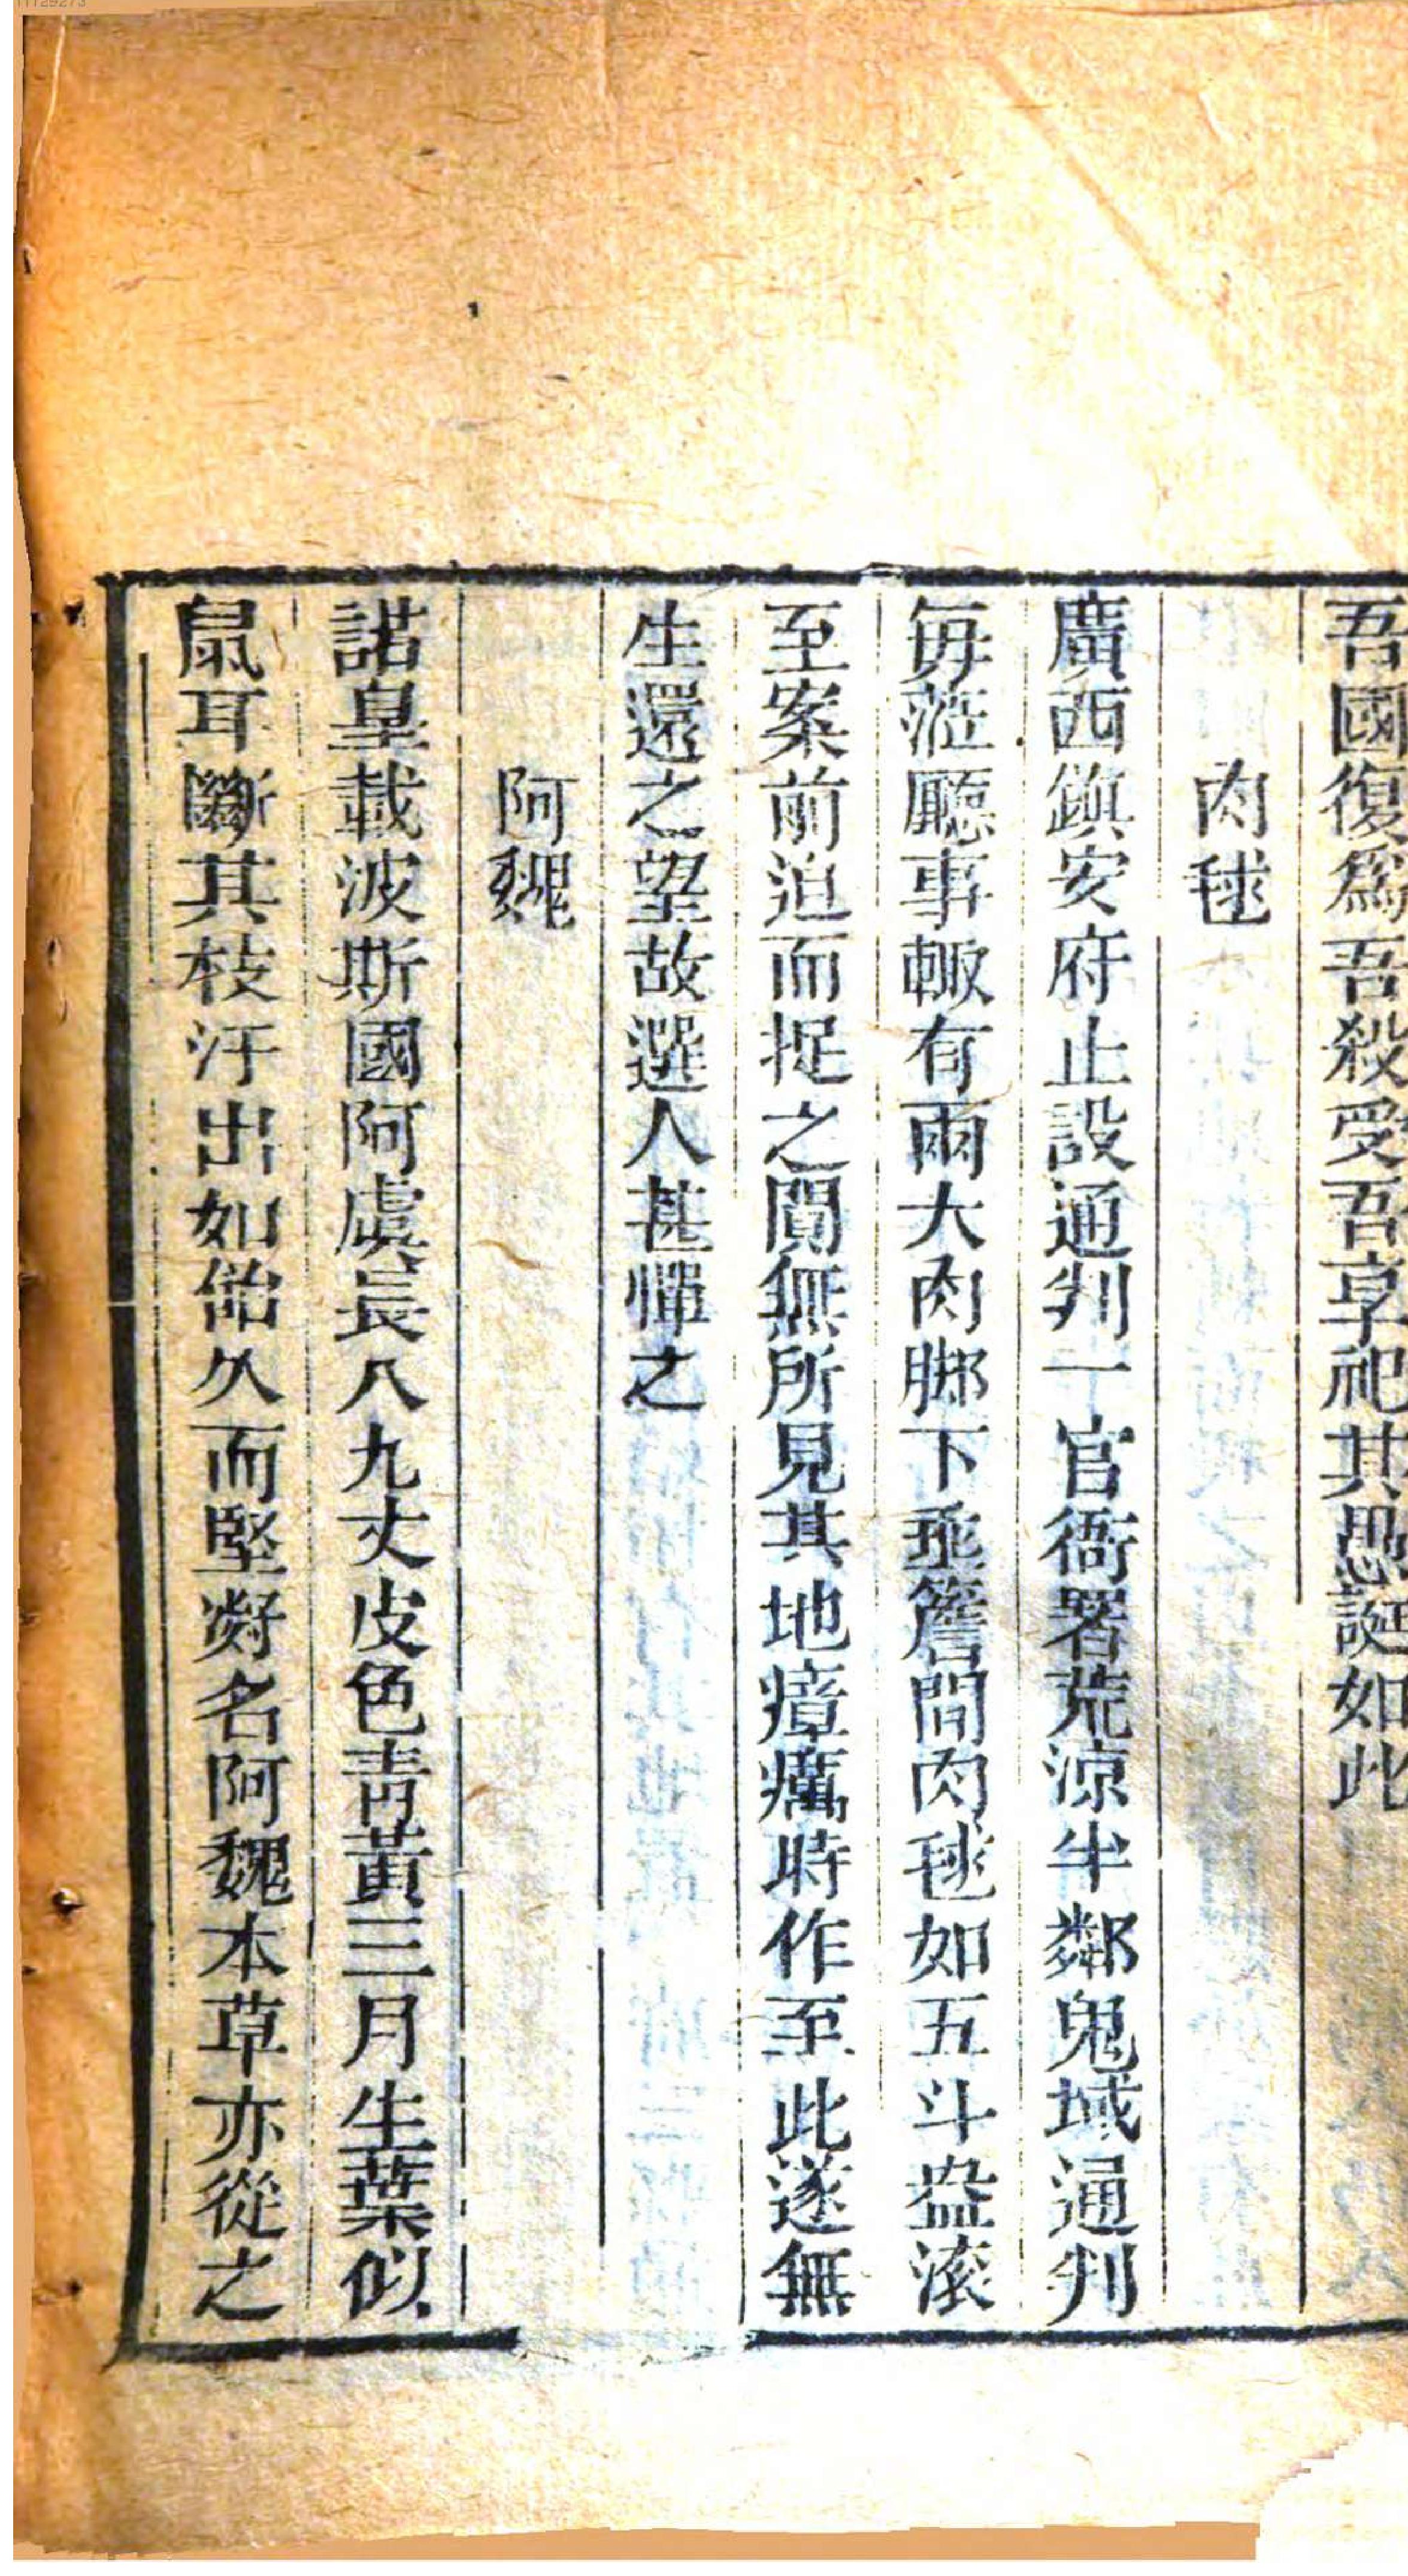 吾國復爲吾殺受吾享祀其愚誕如此
肉毬
廣西鎮安府止設通判一官衙署荒涼半鄰鬼域通判
每涖廳事輙有兩大肉脚下垂簷間肉毬如五斗盎滚
至案前迫而捉之闃無所見其地瘴癘時作至此遂無
生還之望故選人甚憚之
阿魏
諾皐載波斯國阿虞長八九丈皮色青黃三月生葉似
鼠耳斷其枝汁出如飴久而堅凝名阿魏本草亦從之